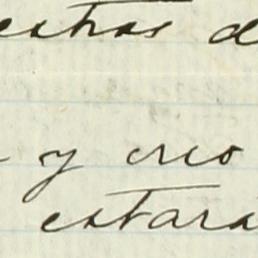 estras d
y creo
estara